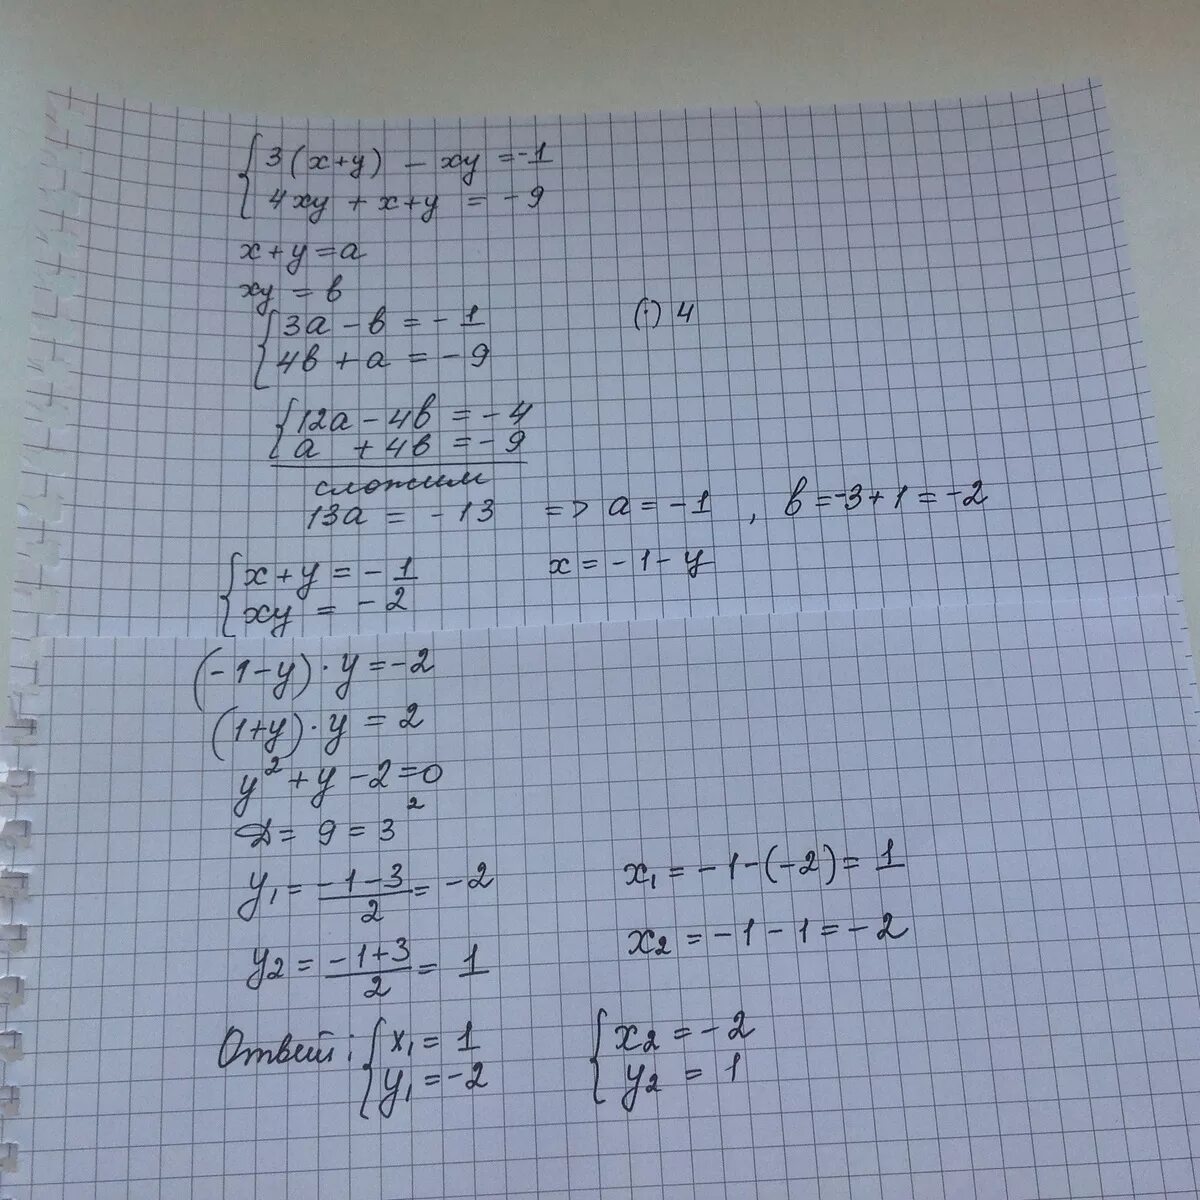 3(x+y) - xy = -1
4xy + x+y = -9
x+y=a
xy = b
3a - b = -1 (·) 4
4b + a = -9
12a - 4b = -4
a + 4b = -9
сложим
13a = -13 => a = -1 , b = -3+1 = -2
x+y = -1 x = -1-y
xy = -2
(-1-y)·y = -2
(1+y)·y = 2
y² + y - 2 = 0
D = 9 = 3²
y₁ = (-1-3)/2 = -2 x₁ = -1-(-2) = 1
y₂ = (-1+3)/2 = 1 x₂ = -1-1 = -2
Ответ: x₁ = 1 x₂ = -2
y₁ = -2 y₂ = 1